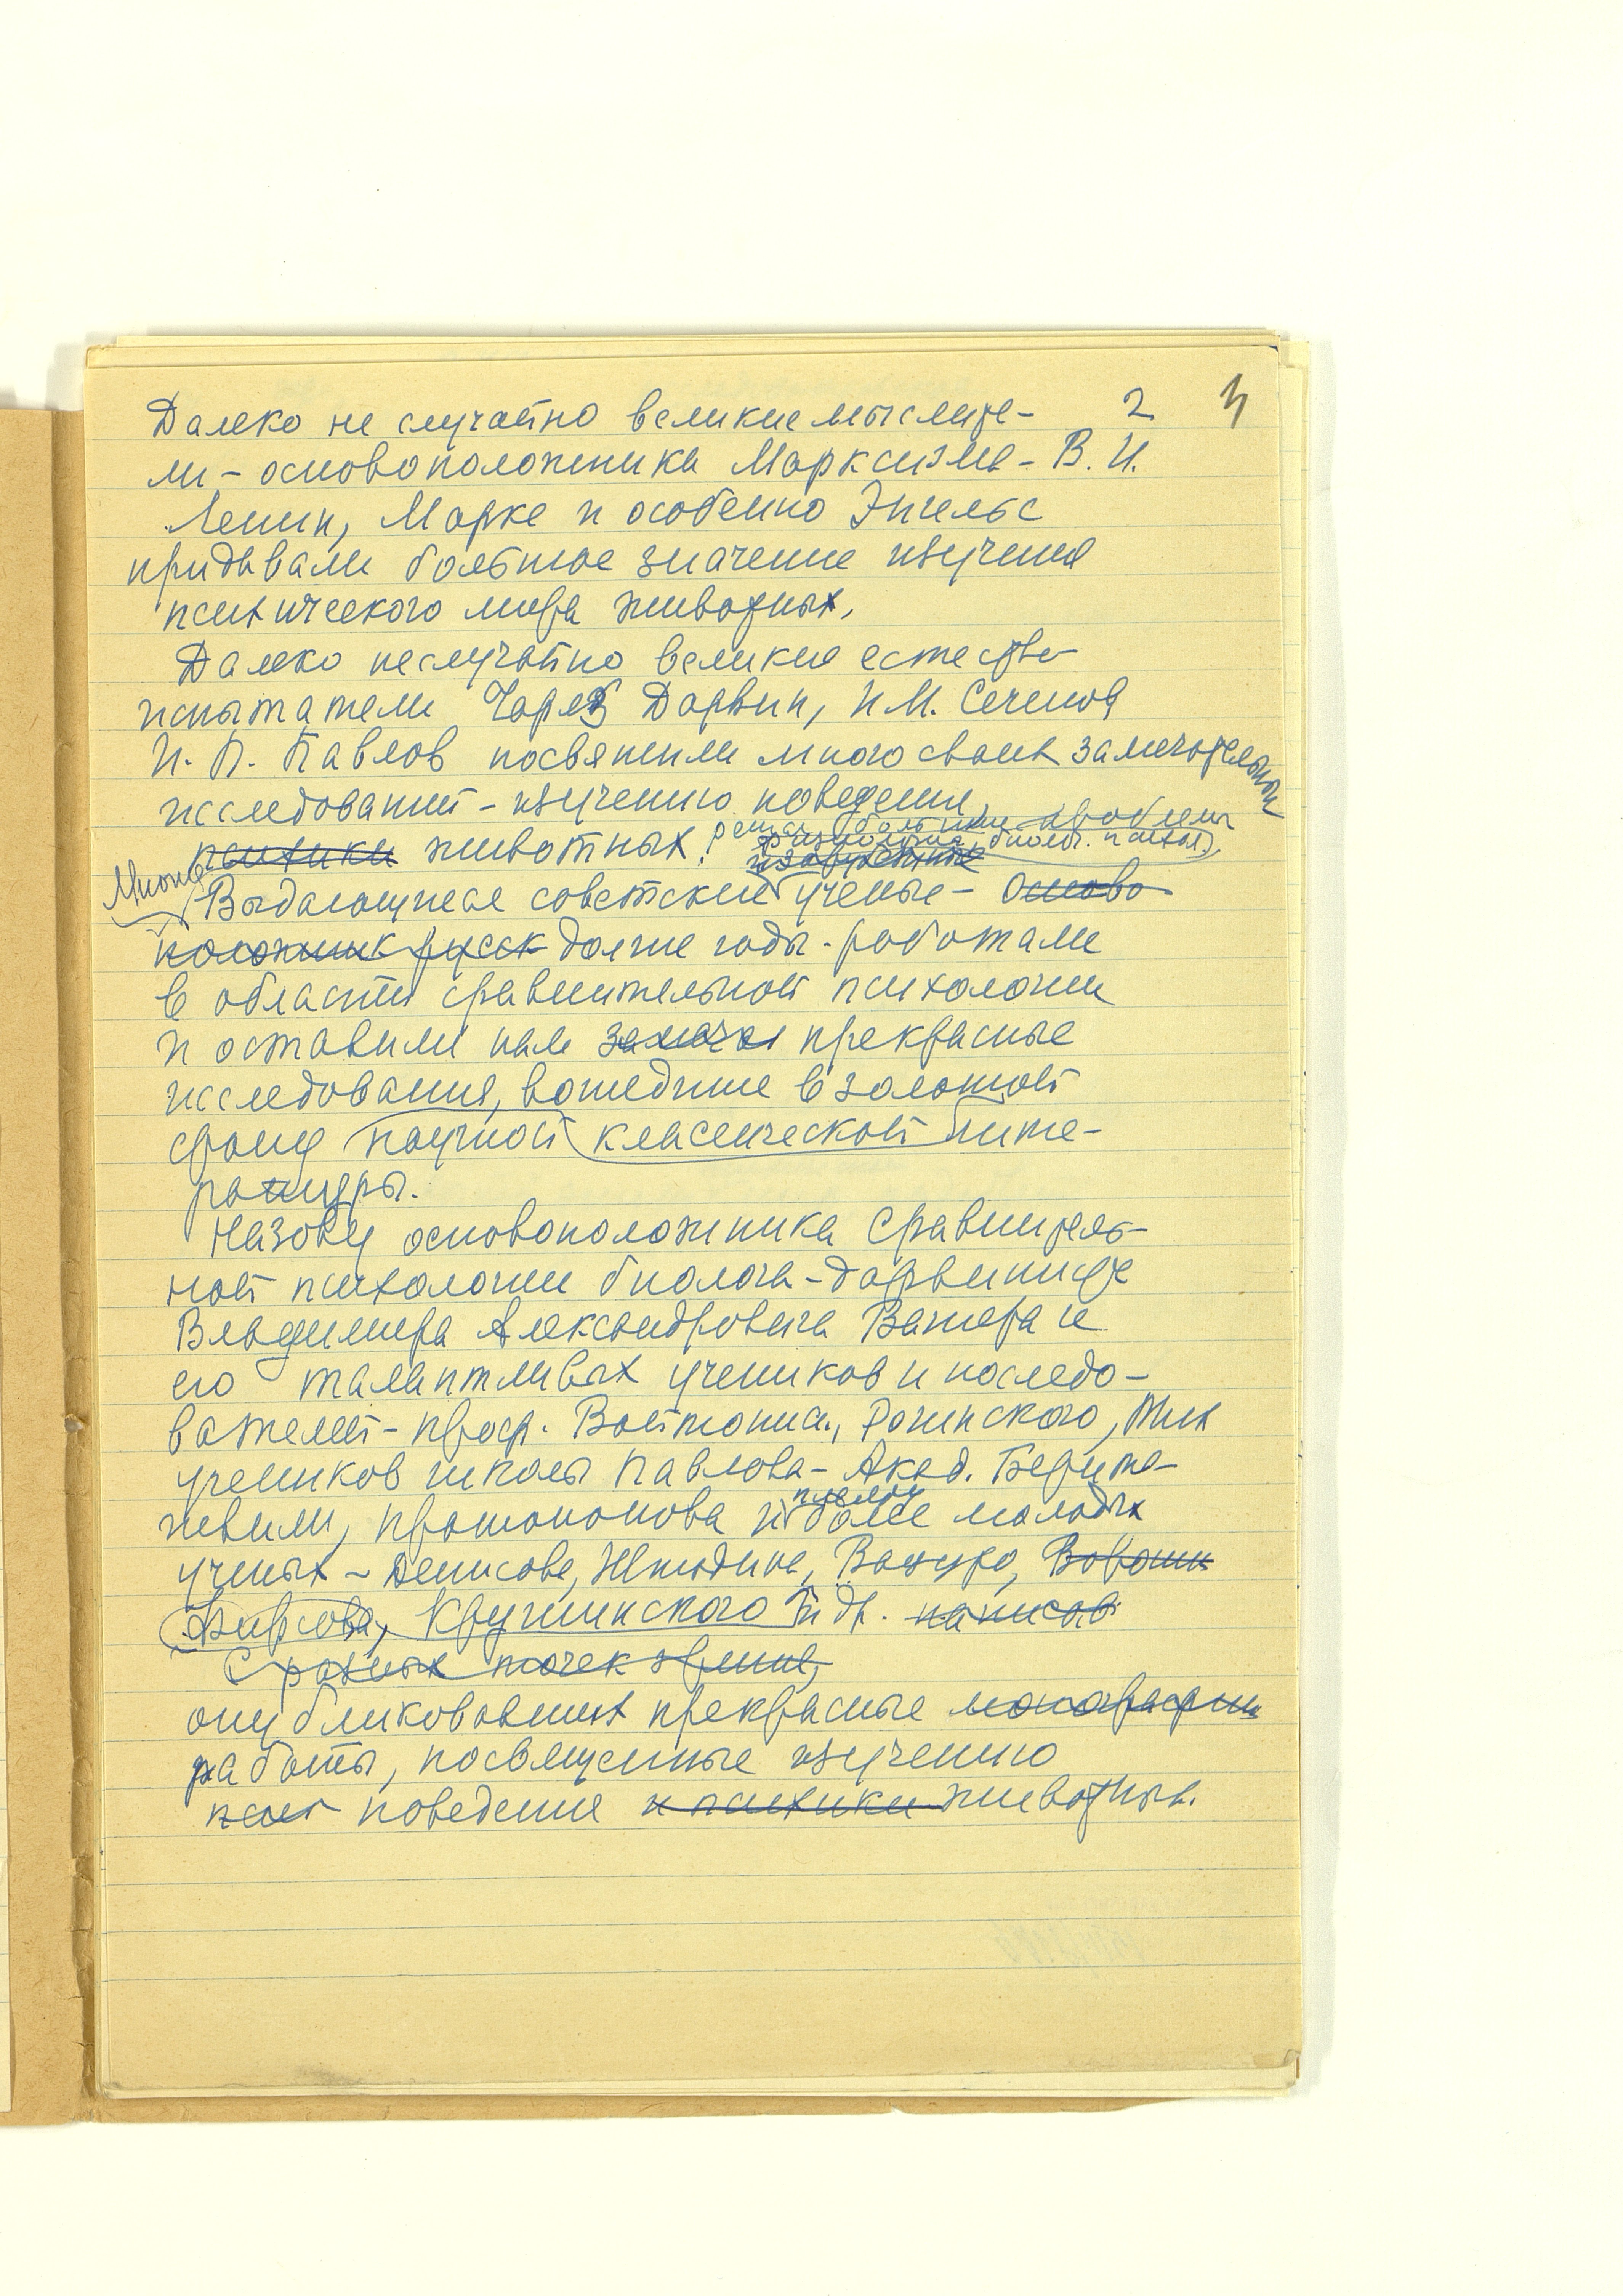 2 3
Далеко не случайно великие мыслите-
ли - основоположника Марксизма - В. И.
Ленин, Маркс и особенно Энгельс
придавали большое значение изучения
психического мира животных.
Далеко неслучайно великия естество-
испытатели Чарлз Дарвин, И.М. Сеченов
И. П. Павлов посвятили много своих замечательных
исследований - изучению поведения
решая большие проблемы
физиологии, биолог. психол.
психики животных.
Многие
Выдающиеся советские ученые - Осново
положник русск долгие годы работали
в области сравнительной психологии
и оставили нам замеча прекрасные
исследования, вошедшие в золотой
фонд научной классической лите-
ратуры.
Назову основоположника сравнитель-
ной психологии биолога-дарвиниста
Владимира Александровича Вагнера и
его талантливых учеников и последо-
вателей - проф. Войтониса, Рогинского,
учеников школы Павлова - Акад. Берита-
швили, Протопопова и более молодых
ученых - Денисова, Штодина, Вацуро,
Фирсова, Крушинского и др. написав
С разных точек зрения,
опубликовавших прекрасные монографии
работы, посвященные изучению
псих поведения и психики животных.